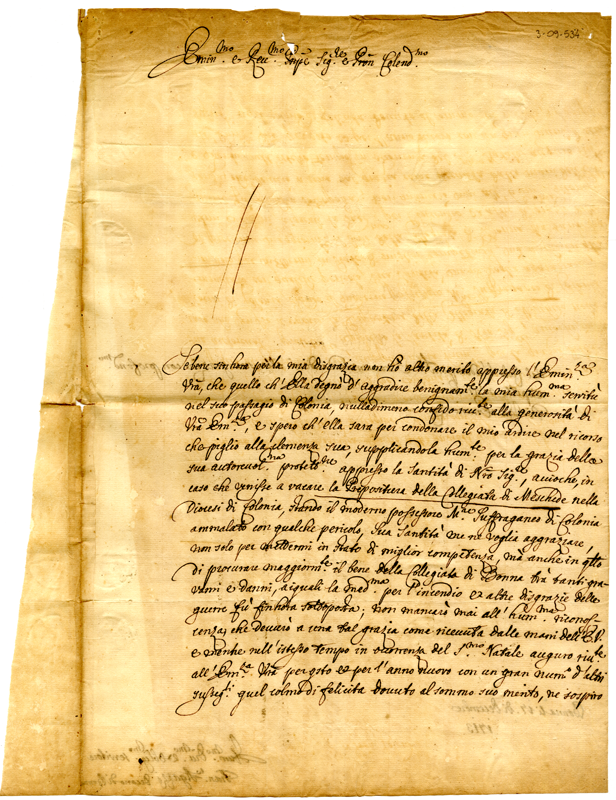 3-09-534
Emin.mo e Rev.mo Sig.re e Pron Colend.mo
Sebene sinhora per la mia disgrazia non hò altro merito appresso l'Emin.za
Vra, che quello ch'Ella degnò d'aggradire benignam.te la mia hum.ma servitù
nel suo passagio di Colonia, nulladimeno confido riv.te alla generosità di
Vra Em.za, e spero ch'ella sarà per condonare il mio ardire nel ricorso
che piglio alla clemenza sua, supplicandola hum.te per la grazia della
sua autorevol.ma protett.ne appresso la Santità di Nro Sig.re, acciochè, in
caso che venisse a vacare la Prepositura della Collegiata di Meschede nella
Diocesi di Colonia, stando il moderno possessore M.re Suffraganeo di Colonia
ammalato con qualche pericolo, Sua Santità me ne voglia aggraziare,
non solo per mettermi in stato di miglior competenza, mà anche in qsto
di procurare maggiorm.te il bene della Collegiata di Bonna trà tanti gra-
vami e danni, a i quali la mad.ma per l'incendio et altre disgrazie delle
guerre fù sinhora sottoposta. Non mancarò mai all'hum.ma riconos-
cenza, che dovarò a una tal grazia come ricevuta dalle mani dell'E.V.
e mentre nell'istesso tempo in occorrenza del S.mo Natale auguro riv.te
all'Em.za Vra per qsto et per l'anno nuovo con un gran num.o d'altri
susseg.ti quel colmo di felicità dovuto al sommo suo merito, ne sospiro